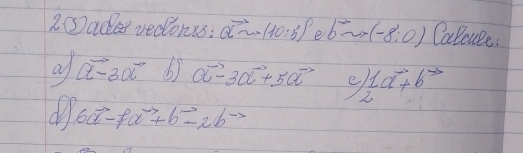 2.5) Dados vectores: a⃗ ~ (10;5) e b⃗ ~ (-8;0) Calcule:
a) a⃗ - 3a⃗ b) a⃗ - 3a⃗ + 5a⃗ c) 1/2 a⃗ + b⃗
d) 6a⃗ - 7a⃗ + b⃗ - 2b⃗